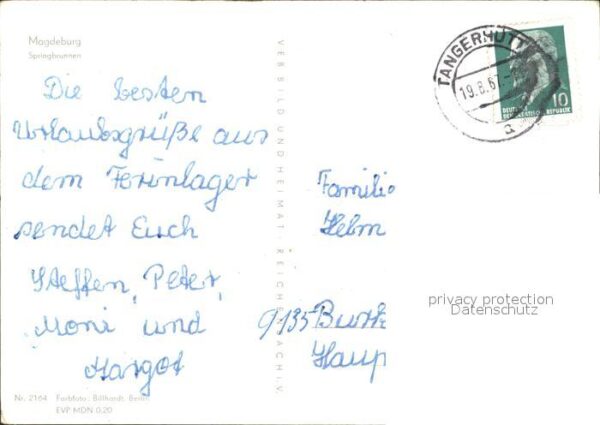 Magdeburg
Springbrunnen
Die besten
Urlaubsgrüße aus
dem Ferinlager
sendet Euch
Steffen, Peter,
Moni und
Margot
Nr. 2164 Farbfoto: Billhardt, Berlin
EVP MDN 0,20
VEB BILD UND HEIMAT REICHENBACH I. V.
TANGERHÜTT
19.8.67
a
10
DEUTSCHE
DEMOKRATISCHE REPUBLIK
Familie
Helm
9135 Burk
Haup
privacy protection
Datenschutz